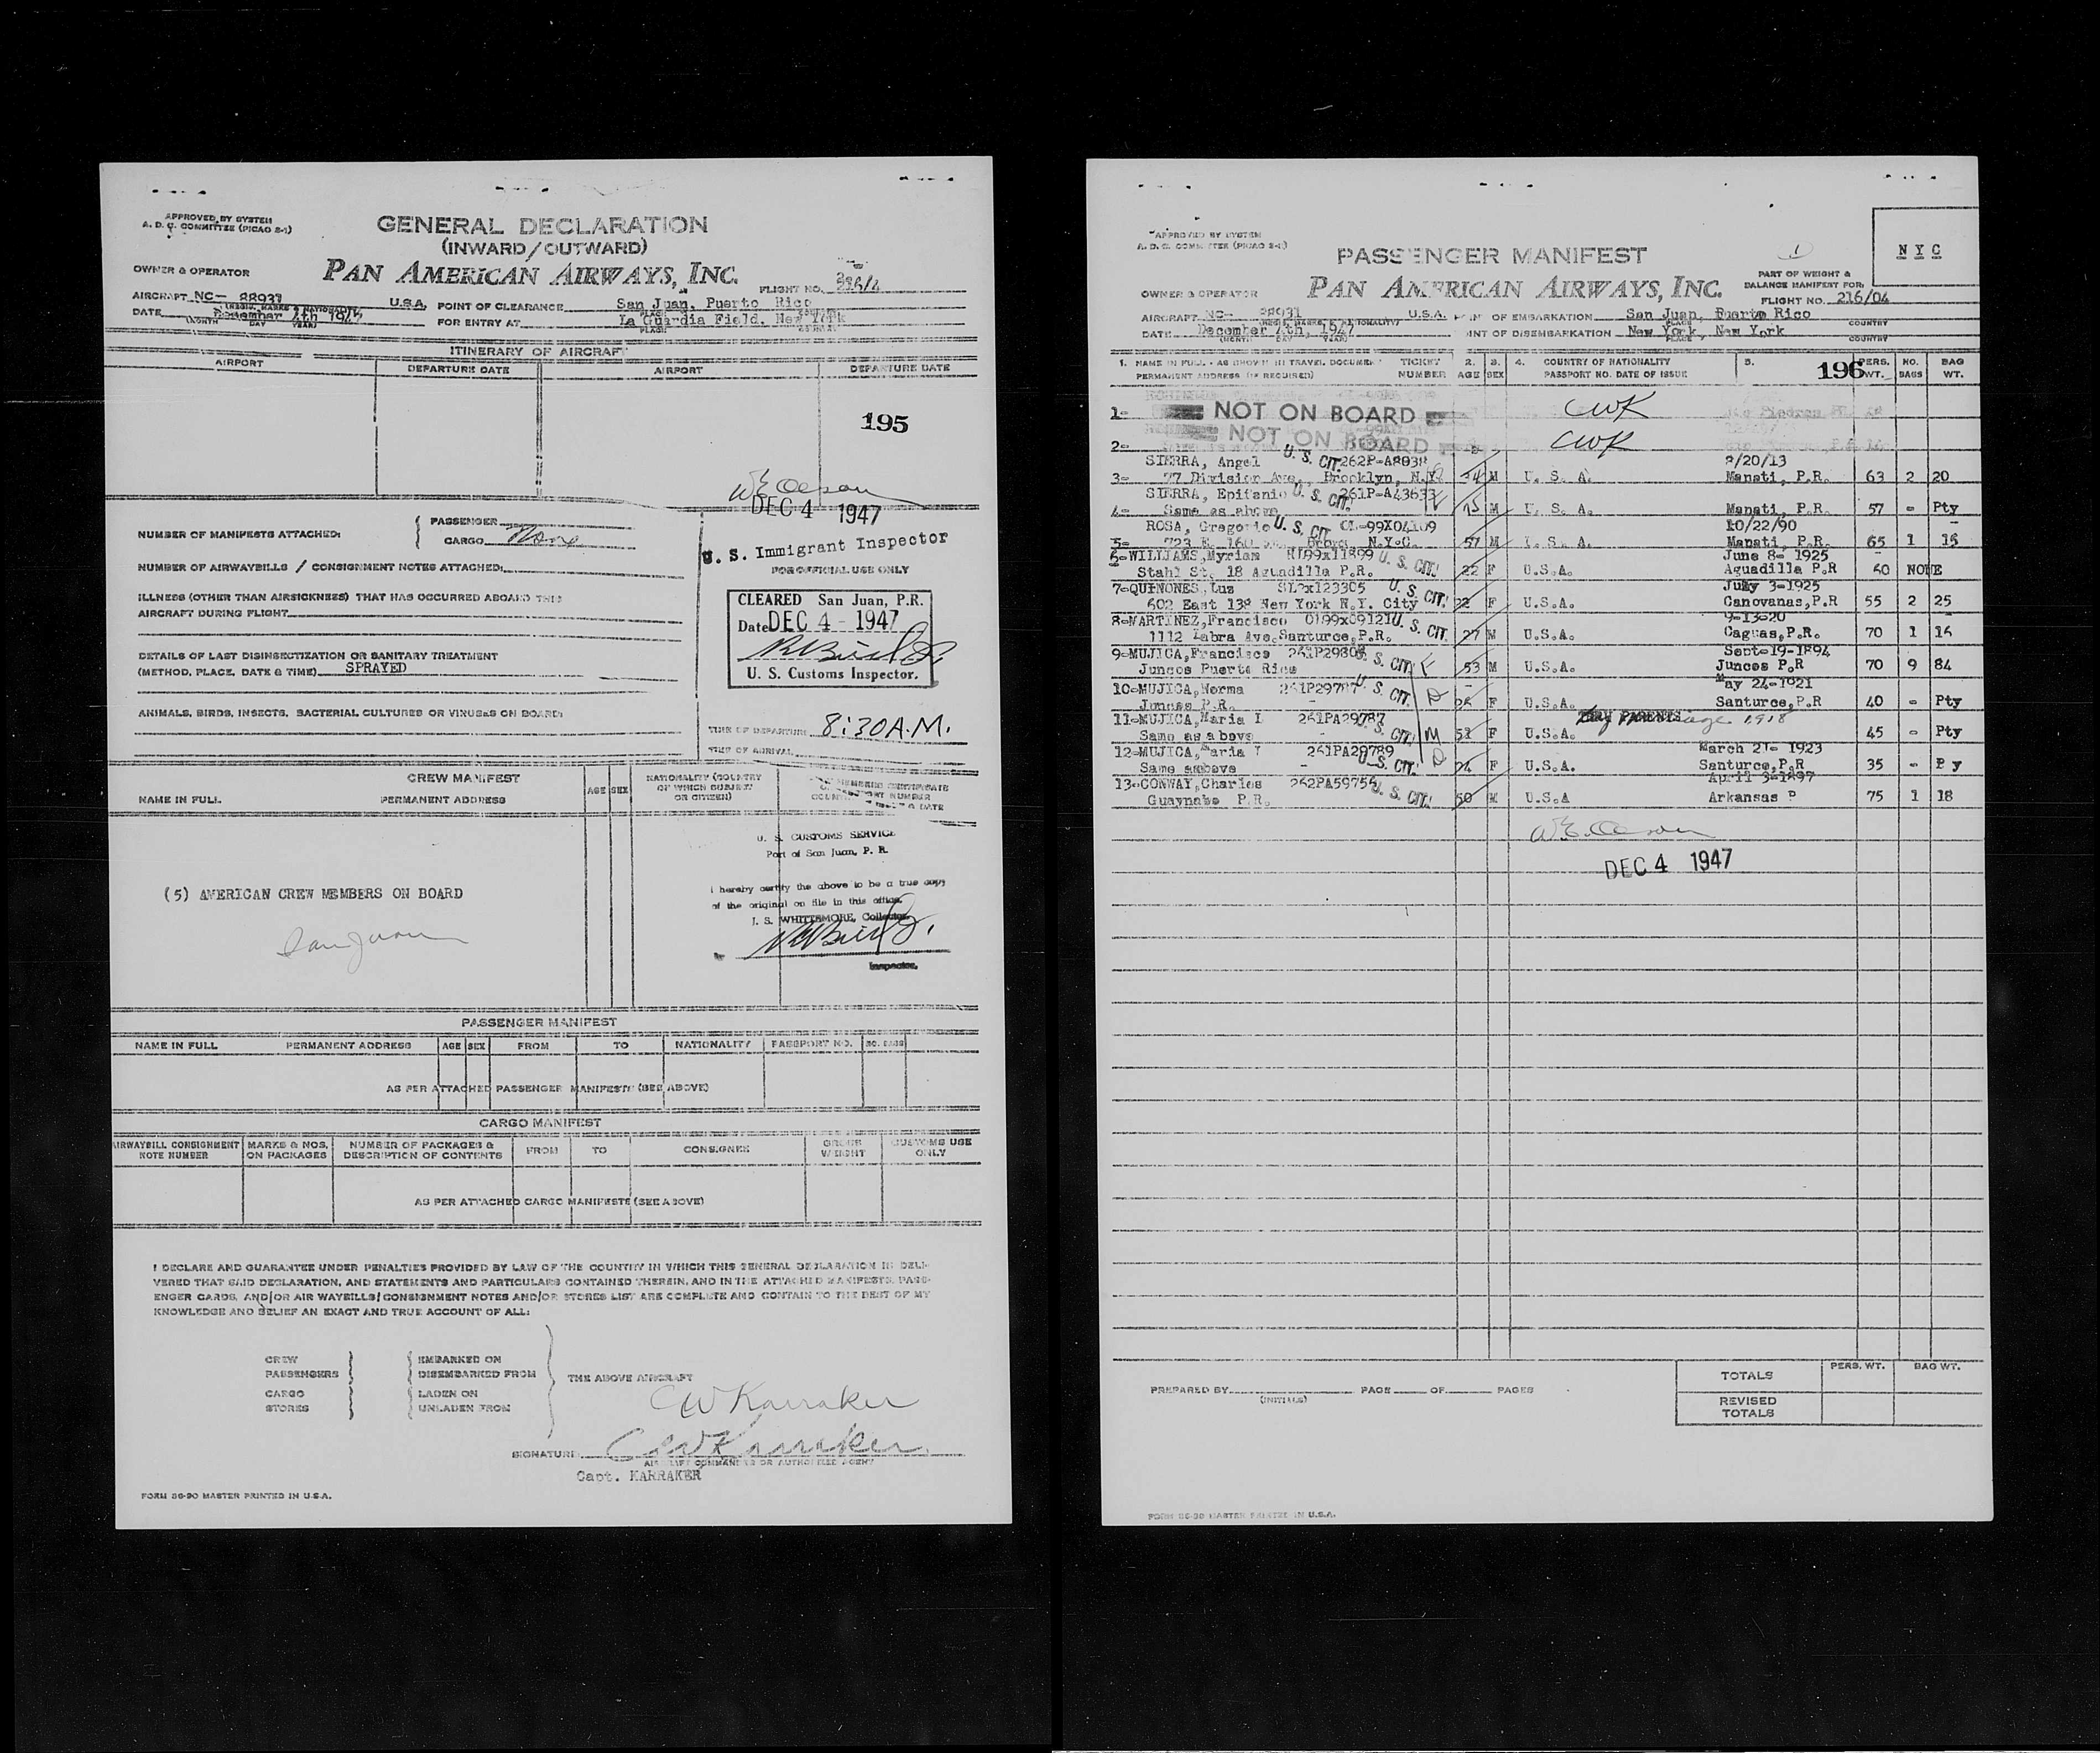 APPROVED BY SYSTEM
A. D. C. COMMITTEE (PICAO 2-1)
GENERAL DECLARATION
(INWARD/OUTWARD)
OWNER & OPERATOR
PAN AMERICAN AIRWAYS, INC.
FLIGHT NO. 216/4
AIRCRAFT NC- 88931 U.S.A. POINT OF CLEARANCE San Juan, Puerto Rico
DATE December 4th 1947 FOR ENTRY AT La Guardia Field, New York
(MONTH DAY YEAR) PLACE
ITINERARY OF AIRCRAFT
AIRPORT DEPARTURE DATE AIRPORT DEPARTURE DATE
195
DEC 4 1947
U. S. Immigrant Inspector
NUMBER OF MANIFESTS ATTACHED: PASSENGER
CARGO None
NUMBER OF AIRWAYBILLS / CONSIGNMENT NOTES ATTACHED:
FOR OFFICIAL USE ONLY
ILLNESS (OTHER THAN AIRSICKNESS) THAT HAS OCCURRED ABOARD THIS
AIRCRAFT DURING FLIGHT
CLEARED San Juan, P.R.
Date DEC 4 - 1947
U. S. Customs Inspector.
DETAILS OF LAST DISINSECTIZATION OR SANITARY TREATMENT
(METHOD, PLACE, DATE & TIME) SPRAYED
ANIMALS, BIRDS, INSECTS, BACTERIAL CULTURES OR VIRUSES ON BOARD:
TIME OF DEPARTURE 8:30 A.M.
TIME OF ARRIVAL
CREW MANIFEST
NAME IN FULL PERMANENT ADDRESS AGE SEX NATIONALITY (COUNTRY
OF WHICH SUBJECT
OR CITIZEN)
U. S. CUSTOMS SERVICE
Port of San Juan, P. R.
I hereby certify the above to be a true copy
of the original on file in this office.
J. S. WHITTEMORE, Collector.
Inspector.
(5) AMERICAN CREW MEMBERS ON BOARD
San Juan
PASSENGER MANIFEST
NAME IN FULL PERMANENT ADDRESS AGE SEX FROM TO NATIONALITY PASSPORT NO. NO. BAGS
AS PER ATTACHED PASSENGER MANIFESTS (SEE ABOVE)
CARGO MANIFEST
AIRWAYBILL CONSIGNMENT NOTE NUMBER MARKS & NOS. ON PACKAGES NUMBER OF PACKAGES & DESCRIPTION OF CONTENTS FROM TO CONSIGNEE GROSS WEIGHT CUSTOMS USE ONLY
AS PER ATTACHED CARGO MANIFESTS (SEE ABOVE)
I DECLARE AND GUARANTEE UNDER PENALTIES PROVIDED BY LAW OF THE COUNTRY IN WHICH THIS GENERAL DECLARATION IS DELI-
VERED THAT SAID DECLARATION, AND STATEMENTS AND PARTICULARS CONTAINED THEREIN, AND IN THE ATTACHED MANIFESTS, PASS-
ENGER CARDS, AND/OR AIR WAYBILLS/CONSIGNMENT NOTES AND/OR STORES LIST ARE COMPLETE AND CONTAIN TO THE BEST OF MY
KNOWLEDGE AND BELIEF AN EXACT AND TRUE ACCOUNT OF ALL:
CREW EMBARKED ON
PASSENGERS DISEMBARKED FROM THE ABOVE AIRCRAFT
CARGO LADEN ON
STORES UNLADEN FROM
CW Karraker
SIGNATURE CW Karraker
AIRCRAFT COMMANDER OR AUTHORIZED AGENT
Capt. KARRAKER
FORM 36-90 MASTER PRINTED IN U.S.A.
APPROVED BY SYSTEM
A. D. C. COMMITTEE (PICAO 2-1)
PASSENGER MANIFEST
1
N Y C
PART OF WEIGHT &
BALANCE MANIFEST FOR:
OWNER & OPERATOR
PAN AMERICAN AIRWAYS, INC.
FLIGHT NO. 216/04
AIRCRAFT NC- 88931 U.S.A. POINT OF EMBARKATION San Juan, Puerto Rico
DATE December 4th, 1947 POINT OF DISEMBARKATION New York, New York
(MONTH DAY YEAR) PLACE COUNTRY
1. NAME IN FULL - AS SHOWN IN TRAVEL DOCUMENT TICKET 2. 3. 4. COUNTRY OF NATIONALITY 5. 196 PERS. NO. BAG
PERMANENT ADDRESS (IF REQUIRED) NUMBER AGE SEX PASSPORT NO. DATE OF ISSUE WT. BAGS WT.
1- NOT ON BOARD CWK
2- NOT ON BOARD CWK
SIERRA, Angel U. S. CIT. 2/20/13
3- 77 Division Ave., Brooklyn, N.Y. 34 M U. S. A. Manati, P.R. 63 2 20
SIERRA, Epifanio U. S. CIT. 261P-A43633
4- Same as above 15 M U. S. A. Manati, P.R. 57 - Pty
ROSA, Gregorio U. S. CIT. 01-99X04109 10/22/90
5- 723 E. 160 Bronx N.Y.C. 57 M U. S. A. Manati, P.R. 65 1 15
6-WILLIAMS,Myriam 0199x11899 U. S. CIT. June 8- 1925
Stahl St. 18 Aguadilla P.R. 22 F U.S.A. Aguadilla P.R 60 NONE
7-QUINONES,Luz SL9x123305 U. S. CIT. July 3-1925
602 East 138 New York N.Y. City 22 F U.S.A. Canovanas,P.R 55 2 25
8-MARTINEZ,Francisco 0199x091210 U. S. CIT. 9-13-20
1112 Labra Ave,Santurce,P.R. 27 M U.S.A. Caguas,P.R. 70 1 16
9-MUJICA,Francisco U. S. CIT. F Sept-19-1894
Juncos Puerto Rico 53 M U.S.A. Juncos P.R 70 9 84
10-MUJICA,Norma 261P29787 U. S. CIT. D May 24-1921
Juncos P.R. 26 F U.S.A. Santurce,P.R 40 - Pty
11-MUJICA,Maria L 261PA29787 U. S. CIT. M
Same as above F U.S.A. 45 - Pty
12-MUJICA,Maria I 261PA29789 U. S. CIT. D March 21- 1923
Same asabove 24 F U.S.A. Santurce,P.R 35 - P y
13-CONWAY,Charles 262PA59756 U. S. CIT. April 3-1897
Guaynabo P.R. 50 M U.S.A Arkansas 75 1 18
DEC 4 1947
PREPARED BY (INITIALS) PAGE OF PAGES
PERS. WT. BAG WT.
TOTALS
REVISED
TOTALS
FORM 36-90 MASTER PRINTED IN U.S.A.